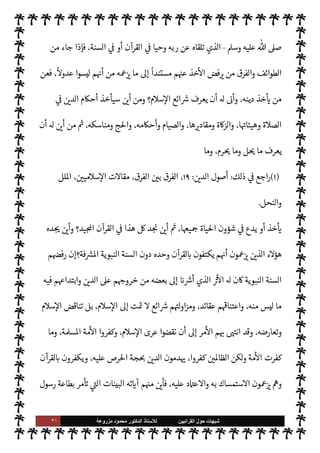 صلى الله عليه وسلم - الذي تلقاه عن ربه وحيا في القرآن أو في السنة. فإذا جاء من
الطوائف والفرق من يرفض الأخذ عنهم مستنداً إلى ما يزعمه من أنهم ليسوا عدولاً. فعن
من يأخذ دينه، وأنى له أن يعرف شرائع الإسلام؟ ومن أين سيأخذ أحكام الدين في
الصلاة وهيئاتها، والزكاة ومقاديرها، والصيام وأحكامه، والحج ومناسكه، ثم من أين له أن
يعرف ما يحل وما يحرم، وما
(١)راجع في ذلك: أصول الدين: ١٩، الفرق بين الفرق، مقالات الإسلاميين، الملل
والنحل.
يأخذ أو يدع في شؤون الحياة جميعها، ثم أين نجد كل هذا في القرآن المجيد؟ وأين يجده
هؤلاء الذين يزعمون أنهم يكتفون بالقرآن وحده دون السنة النبوية المشرفة؟إن رفضهم
السنة النبوية كان له الأثر الذي أشرنا إلى بعضه من خروجهم على الدين وابتداعهم فيه
ما ليس منه، واعتناقهم عقائد، ومزاولتهم شرائع لا تمت إلى الإسلام، بل تناقض الإسلام
وتعارضه، وقد انتهى بهم الأمر إلى أن نقضوا عرى الإسلام، وكفروا الأمة المسلمة، وما
كفرت الأمة ولكن الظالمين كفروا، يهدمون الدين بحجة الحرص عليه، ويكفرون بالقرآن
وهم يزعمون الاستمساك به والاعتماد عليه، فأين منهم آياته البينات التي تأمر بطاعة رسول
شبهات حول القرآنيين للأستاذ الدكتور محمود مزروعة ٣١